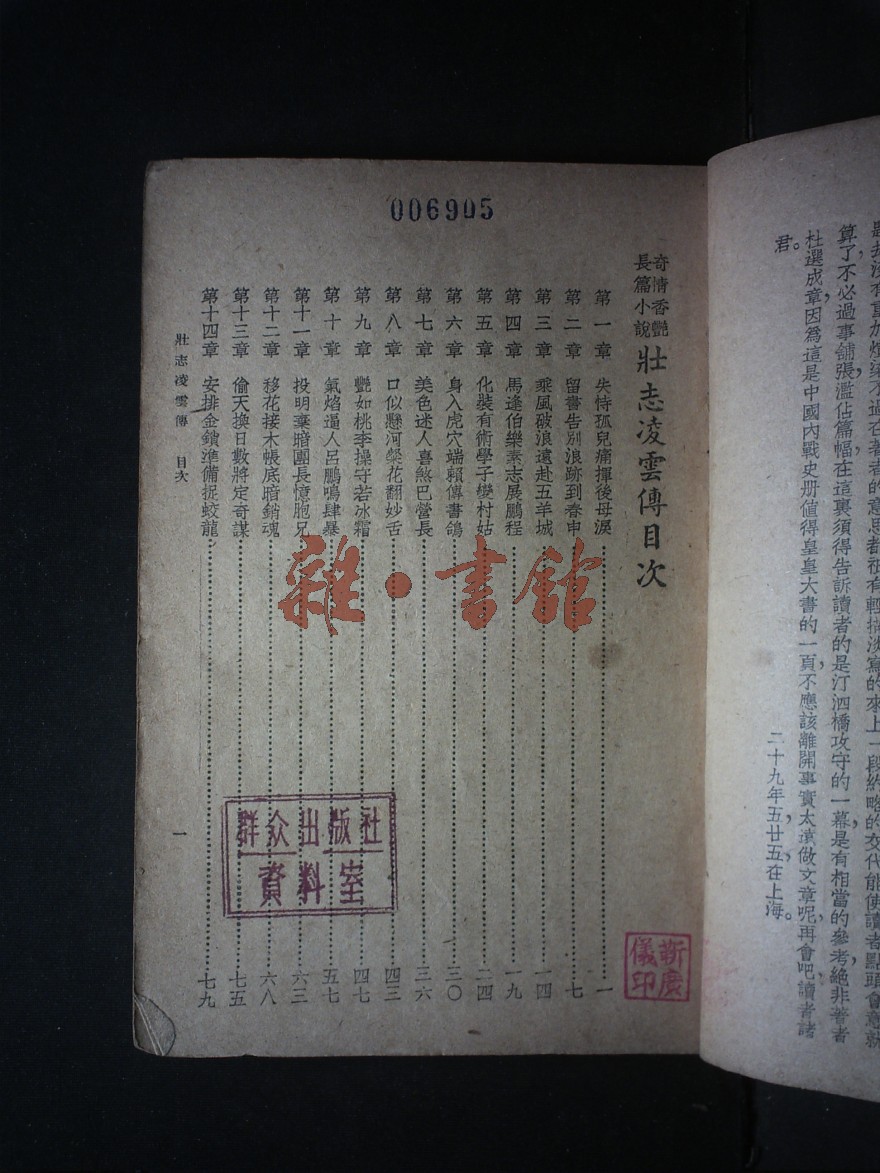 是却沒有重加煊染不過在著者的意思都祇有輕描淡寫的來上一段約略的交代能使讀者點頭會意就
算了不必過事舖張濫佔篇幅在這裏須得告訴讀者的是汀泗橋攻守的一幕是有相當的參考絕非著者
杜選成章因爲這是中國內戰史册值得皇皇大書的一頁不應該離開事實太遠做文章呢，再會吧讀者諸
君。
二十九年，五，廿五，在上海。
006905
奇情香艷
長篇小說
壯志凌雲傳目次
第一章 失恃孤兒痛揮後母淚 一
第二章 留書告別浪跡到春申 七
第三章 乘風破浪遠赴五羊城 一四
第四章 馬逢伯樂素志展鵬程 一九
第五章 化裝有術學子變村姑 二四
第六章 身入虎穴端賴傳書鴿 三〇
第七章 美色迷人喜煞巴營長 三六
第八章 口似懸河粲花翻妙舌 四三
第九章 艷如桃李操守若冰霜 四七
第十章 氣焰逼人呂鵬鳴肆暴 五七
第十一章 投明棄暗團長憶胞兄 六三
第十二章 移花接木帳底暗銷魂 六八
第十三章 偷天換日數將定奇謀 七五
第十四章 安排金鎖準備捉蛟龍 七九
壯志凌雲傳 目次
一
雜·書館
群众出版社
資料室
靳廣
儀印